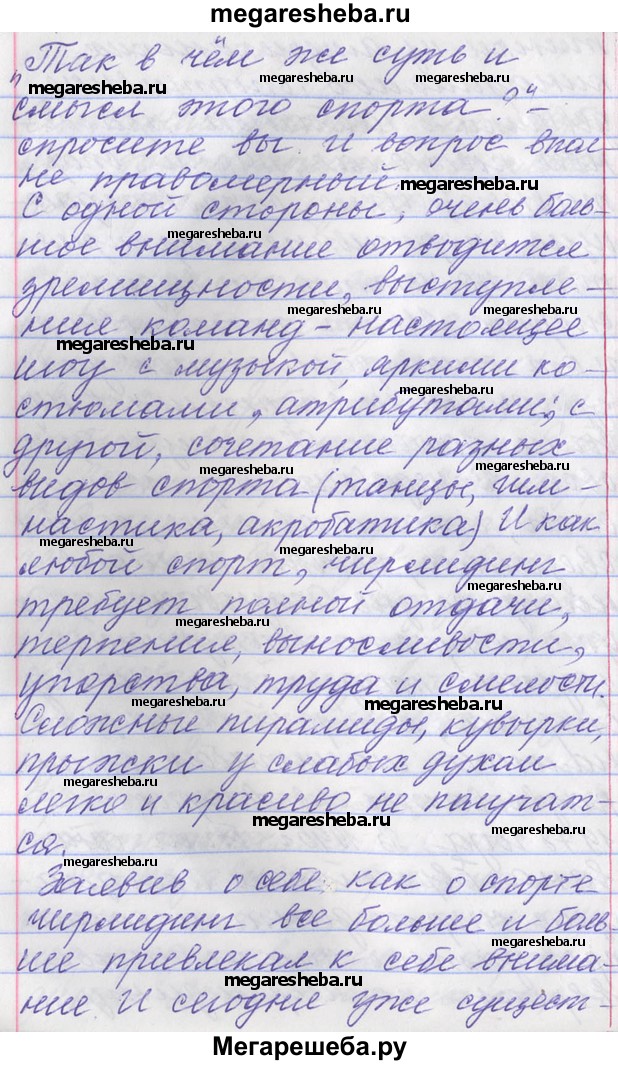 megaresheba.ru
„Так в чём же суть и
megaresheba.ru megaresheba.ru
megaresheba.ru
смысл этого спорта?“ –
спросите вы. И вопрос впол-
не правомерный.
megaresheba.ru
С одной стороны, очень боль-
megaresheba.ru
шое внимание отводится
зрелищности, выступле-
megaresheba.ru
ния команд – настоящее
megaresheba.ru
шоу с музыкой, яркими ко-
megaresheba.ru
стюмами, атрибутами; с
другой, сочетание разных
megaresheba.ru megaresheba.ru
видов спорта (танцы, гим-
настика, акробатика) И как
megaresheba.ru megaresheba.ru
любой спорт, чирлидинг
megaresheba.ru
требует полной отдачи,
megaresheba.ru
терпения, выносливости,
упорства, труда и смелости.
megaresheba.ru megaresheba.ru
Сложные пирамиды, кувырки,
прыжки у слабых духом
megaresheba.ru
легко и красиво не получат-
megaresheba.ru
ся.
megaresheba.ru
Заявив о себе как о спорте
чирлидинг все больше и боль-
megaresheba.ru
ше привлекал к себе внима-
megaresheba.ru
ние. И сегодня уже сущест-
megaresheba.ru
Мегарешеба.ру